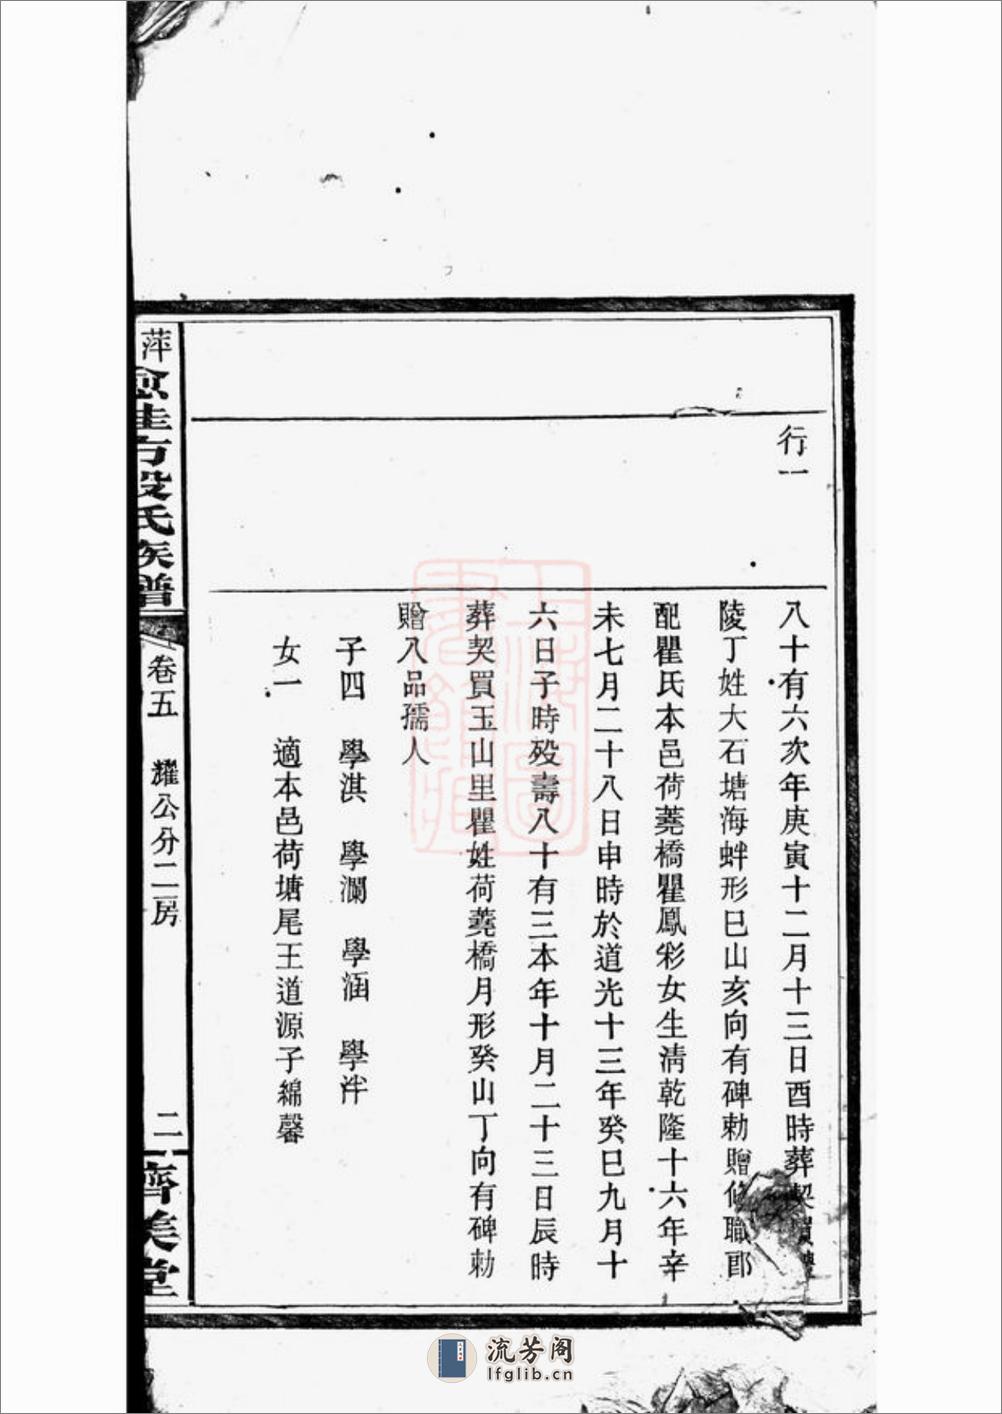 行一
八十有六次年庚寅十二月十三日酉時葬契買
陵丁姓大石塘海蚌形巳山亥向有碑勅贈修職郎
配瞿氏本邑荷蕘橋瞿鳳彩女生清乾隆十六年辛
未七月二十八日申時於道光十三年癸巳九月十
六日子時殁壽八十有三本年十月二十三日辰時
葬契買玉山里瞿姓荷蕘橋月形癸山丁向有碑勅
贈八品孺人
子四 學淇 學瀾 學涵 學泮
女一 適本邑荷塘尾王道源子綿馨
萍 段氏族譜
卷五 耀公分二房
二 齊美堂
流芳阁
lfglib.cn